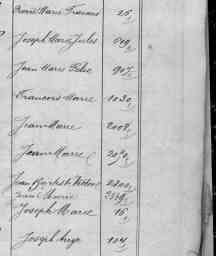 Marie François 26
Joseph Marie Jules 649
Jean Marie 907
François Marie 1030
Jean Marie 2008
Jean Marie 2070
Jean Baptiste 2200
Jean Marie
Joseph Marie 16
Joseph Ange 104